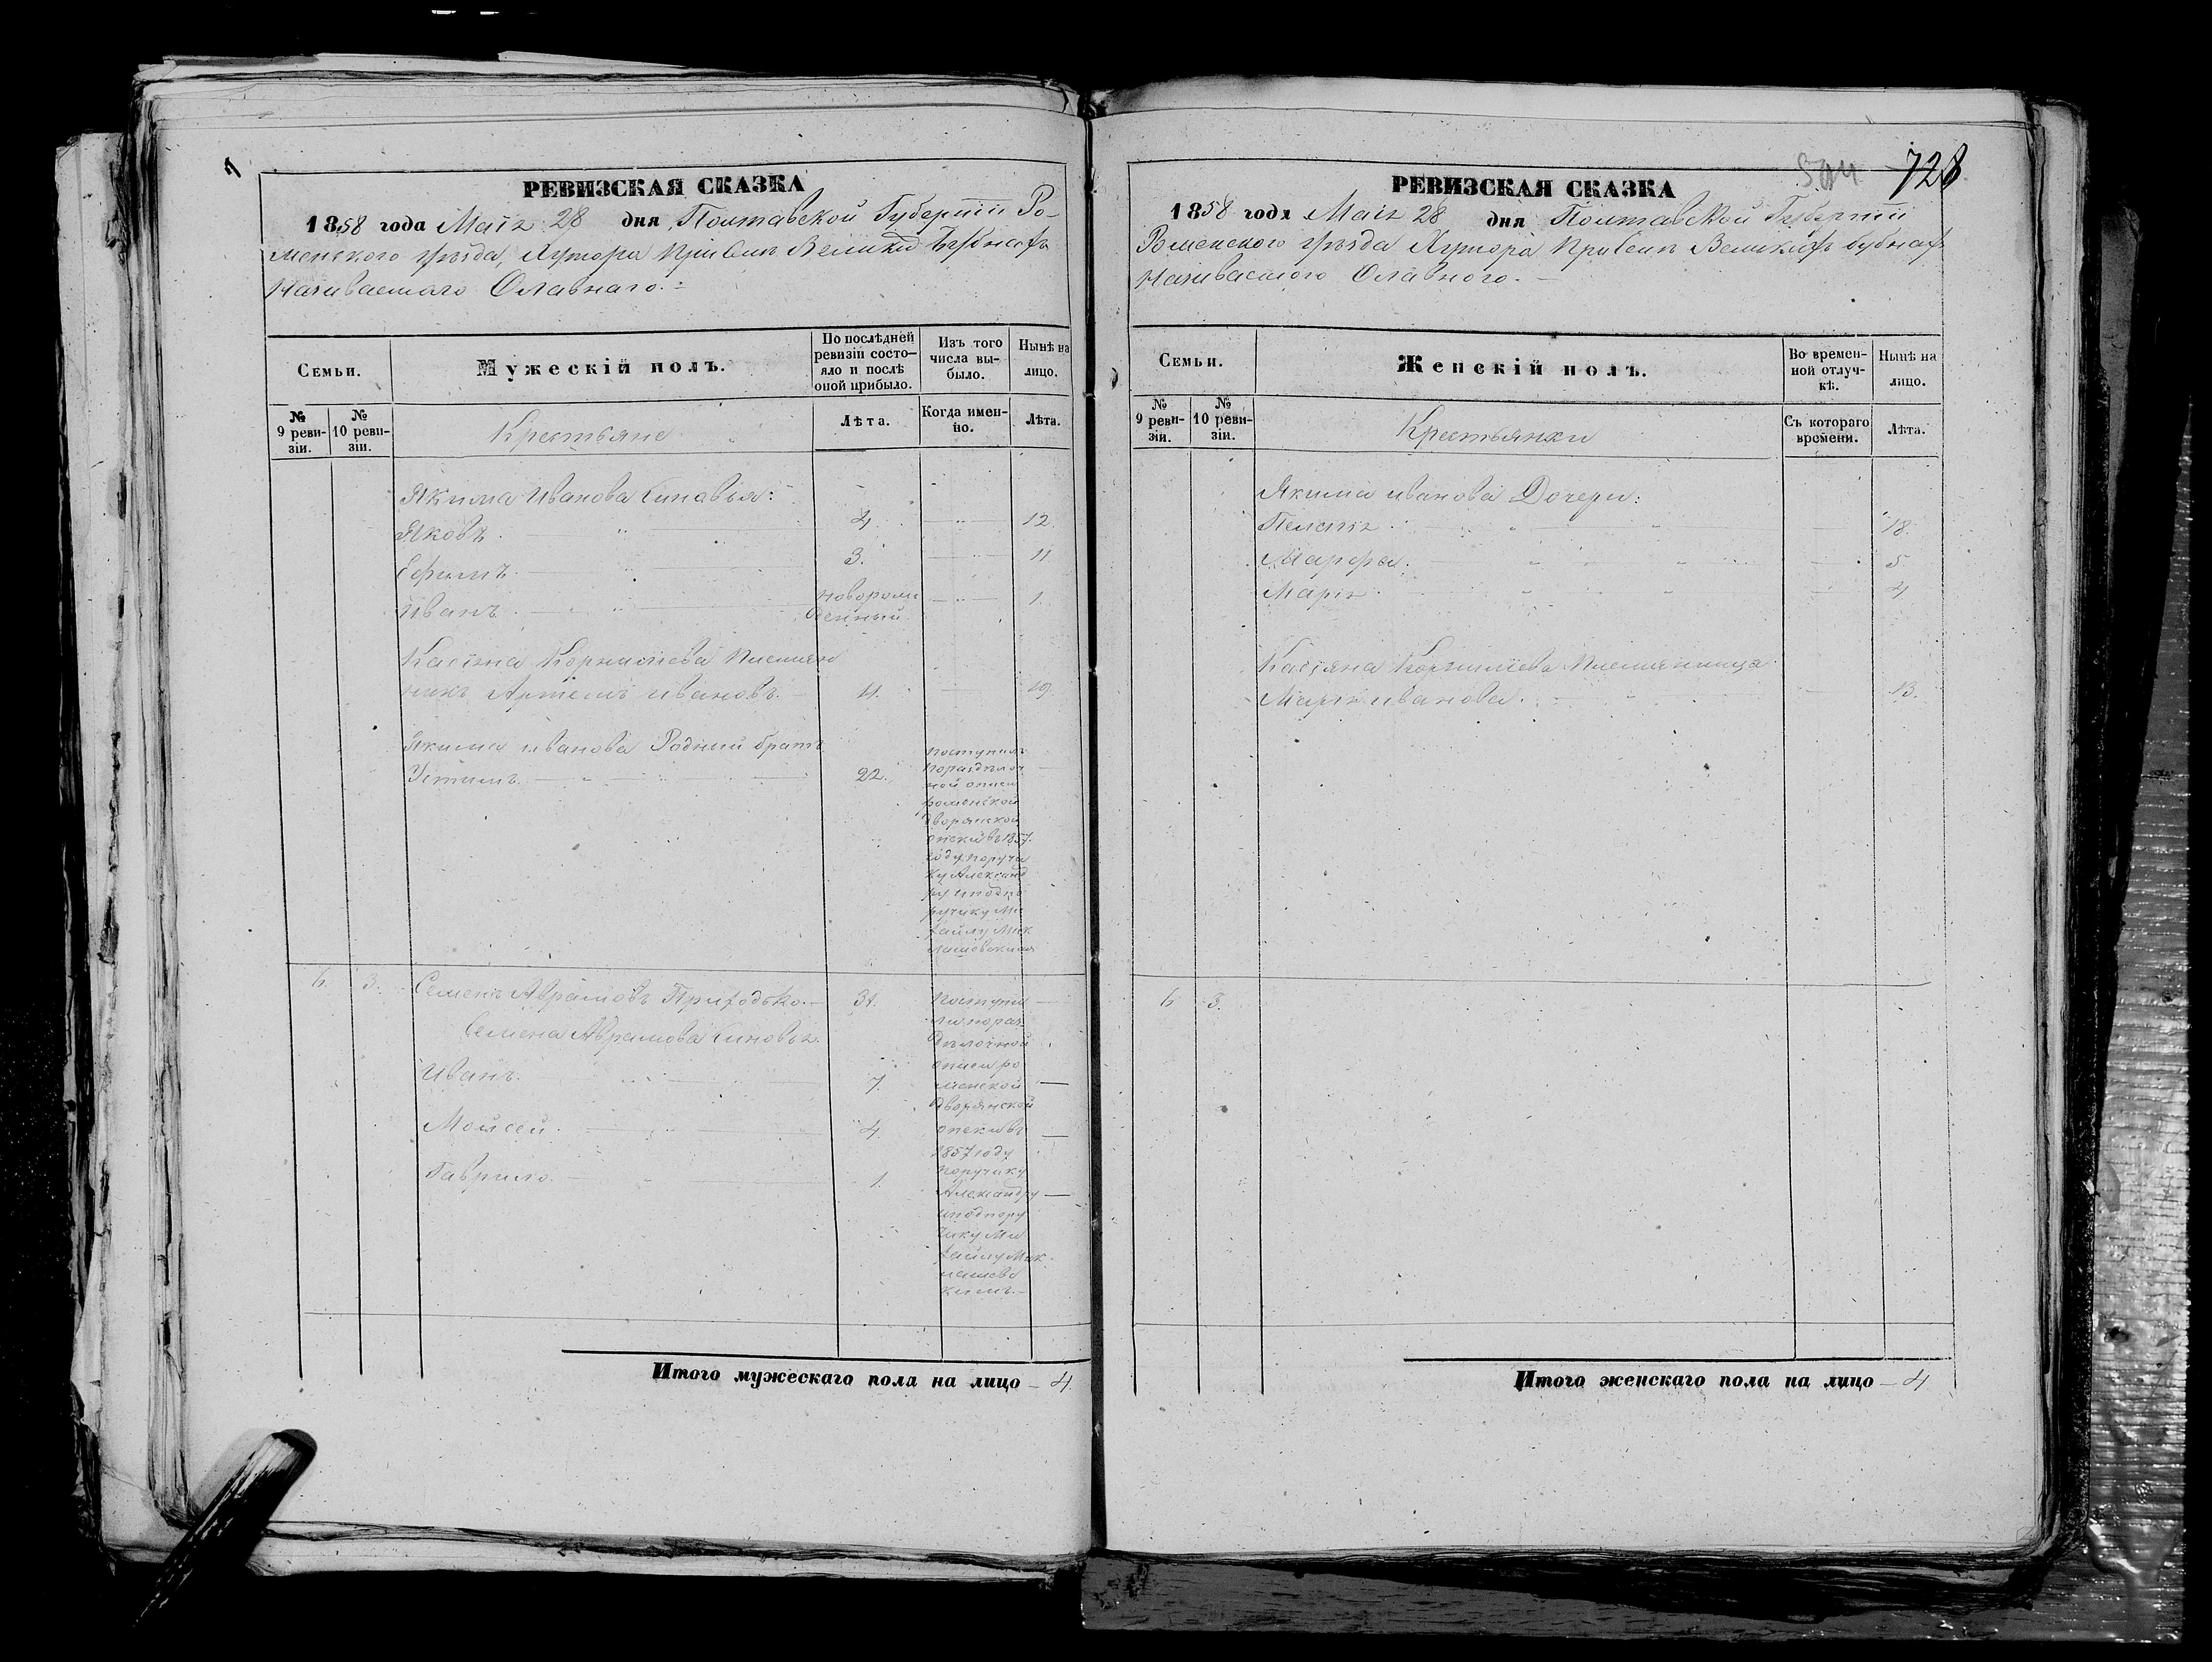 РЕВИЗСКАЯ СКАЗКА
1858 года Маія 28 дня Полтавской Губерніи Ро-
менского уѣзда, Хутора при селѣ Великих Бубнах
называемаго Славнаго.
Семьи.
Мужескій полъ.
По послѣдней ревизіи состо-
яло и послѣ оной прибыло.
Изъ того числа вы-
было.
Нынѣ на лицо.
№ 9 реви-
зіи.
№ 10 реви-
зіи.
Крестьяне
Лѣта.
Когда имен-
но.
Лѣта.
Якима Иванова Синовья:
Яковъ. 4. 12.
Ефимъ. 3. 11
Иванъ. Новорож
денный 1.
Касіяна Корнилиева Племян
никъ Артемъ Ивановъ. 11. 19.
Якима Иванова Родный братъ
Устимъ. 22.
поступил
по раздѣлоч
ной описи
роменской
дворянской
опеки въ 1857
году поручи
ку Александ
ру и подпо
ручику Ми
хайлу Мик
лашевским
6. 3. Семенъ Абрамовъ Приходько. 31.
Семена Абрамова Синовья.
Иванъ. 7.
Мойсей. 4.
Гаврило. 1.
Поступи
ли по раз
дѣлочной
описи ро
менской
дворянской
опеки въ
1857 году
поручику
Александру
и подпору
чику Ми
хайлу Мик
лашевс
кимъ.
Итого мужескаго пола на лицо 4.
728
РЕВИЗСКАЯ СКАЗКА
1858 года Маія 28 дня Полтавской Губерніи
Роменского уѣзда Хутора при селѣ Великихъ бубнах
называемого Славного.
Семьи.
Женскій полъ.
Во времен-
ной отлуч-
кѣ.
Нынѣ на лицо.
№ 9 реви-
зіи.
№ 10 реви-
зіи.
Крестьянки
Съ котораго времени.
Лѣта.
Якима Иванова Дочери:
Пелагія. 18.
Марфа. 5
Марія. 4
Касіяна Корнилиева Племянница
Марія Иванова. 13.
6 3.
Итого женскаго пола на лицо 4